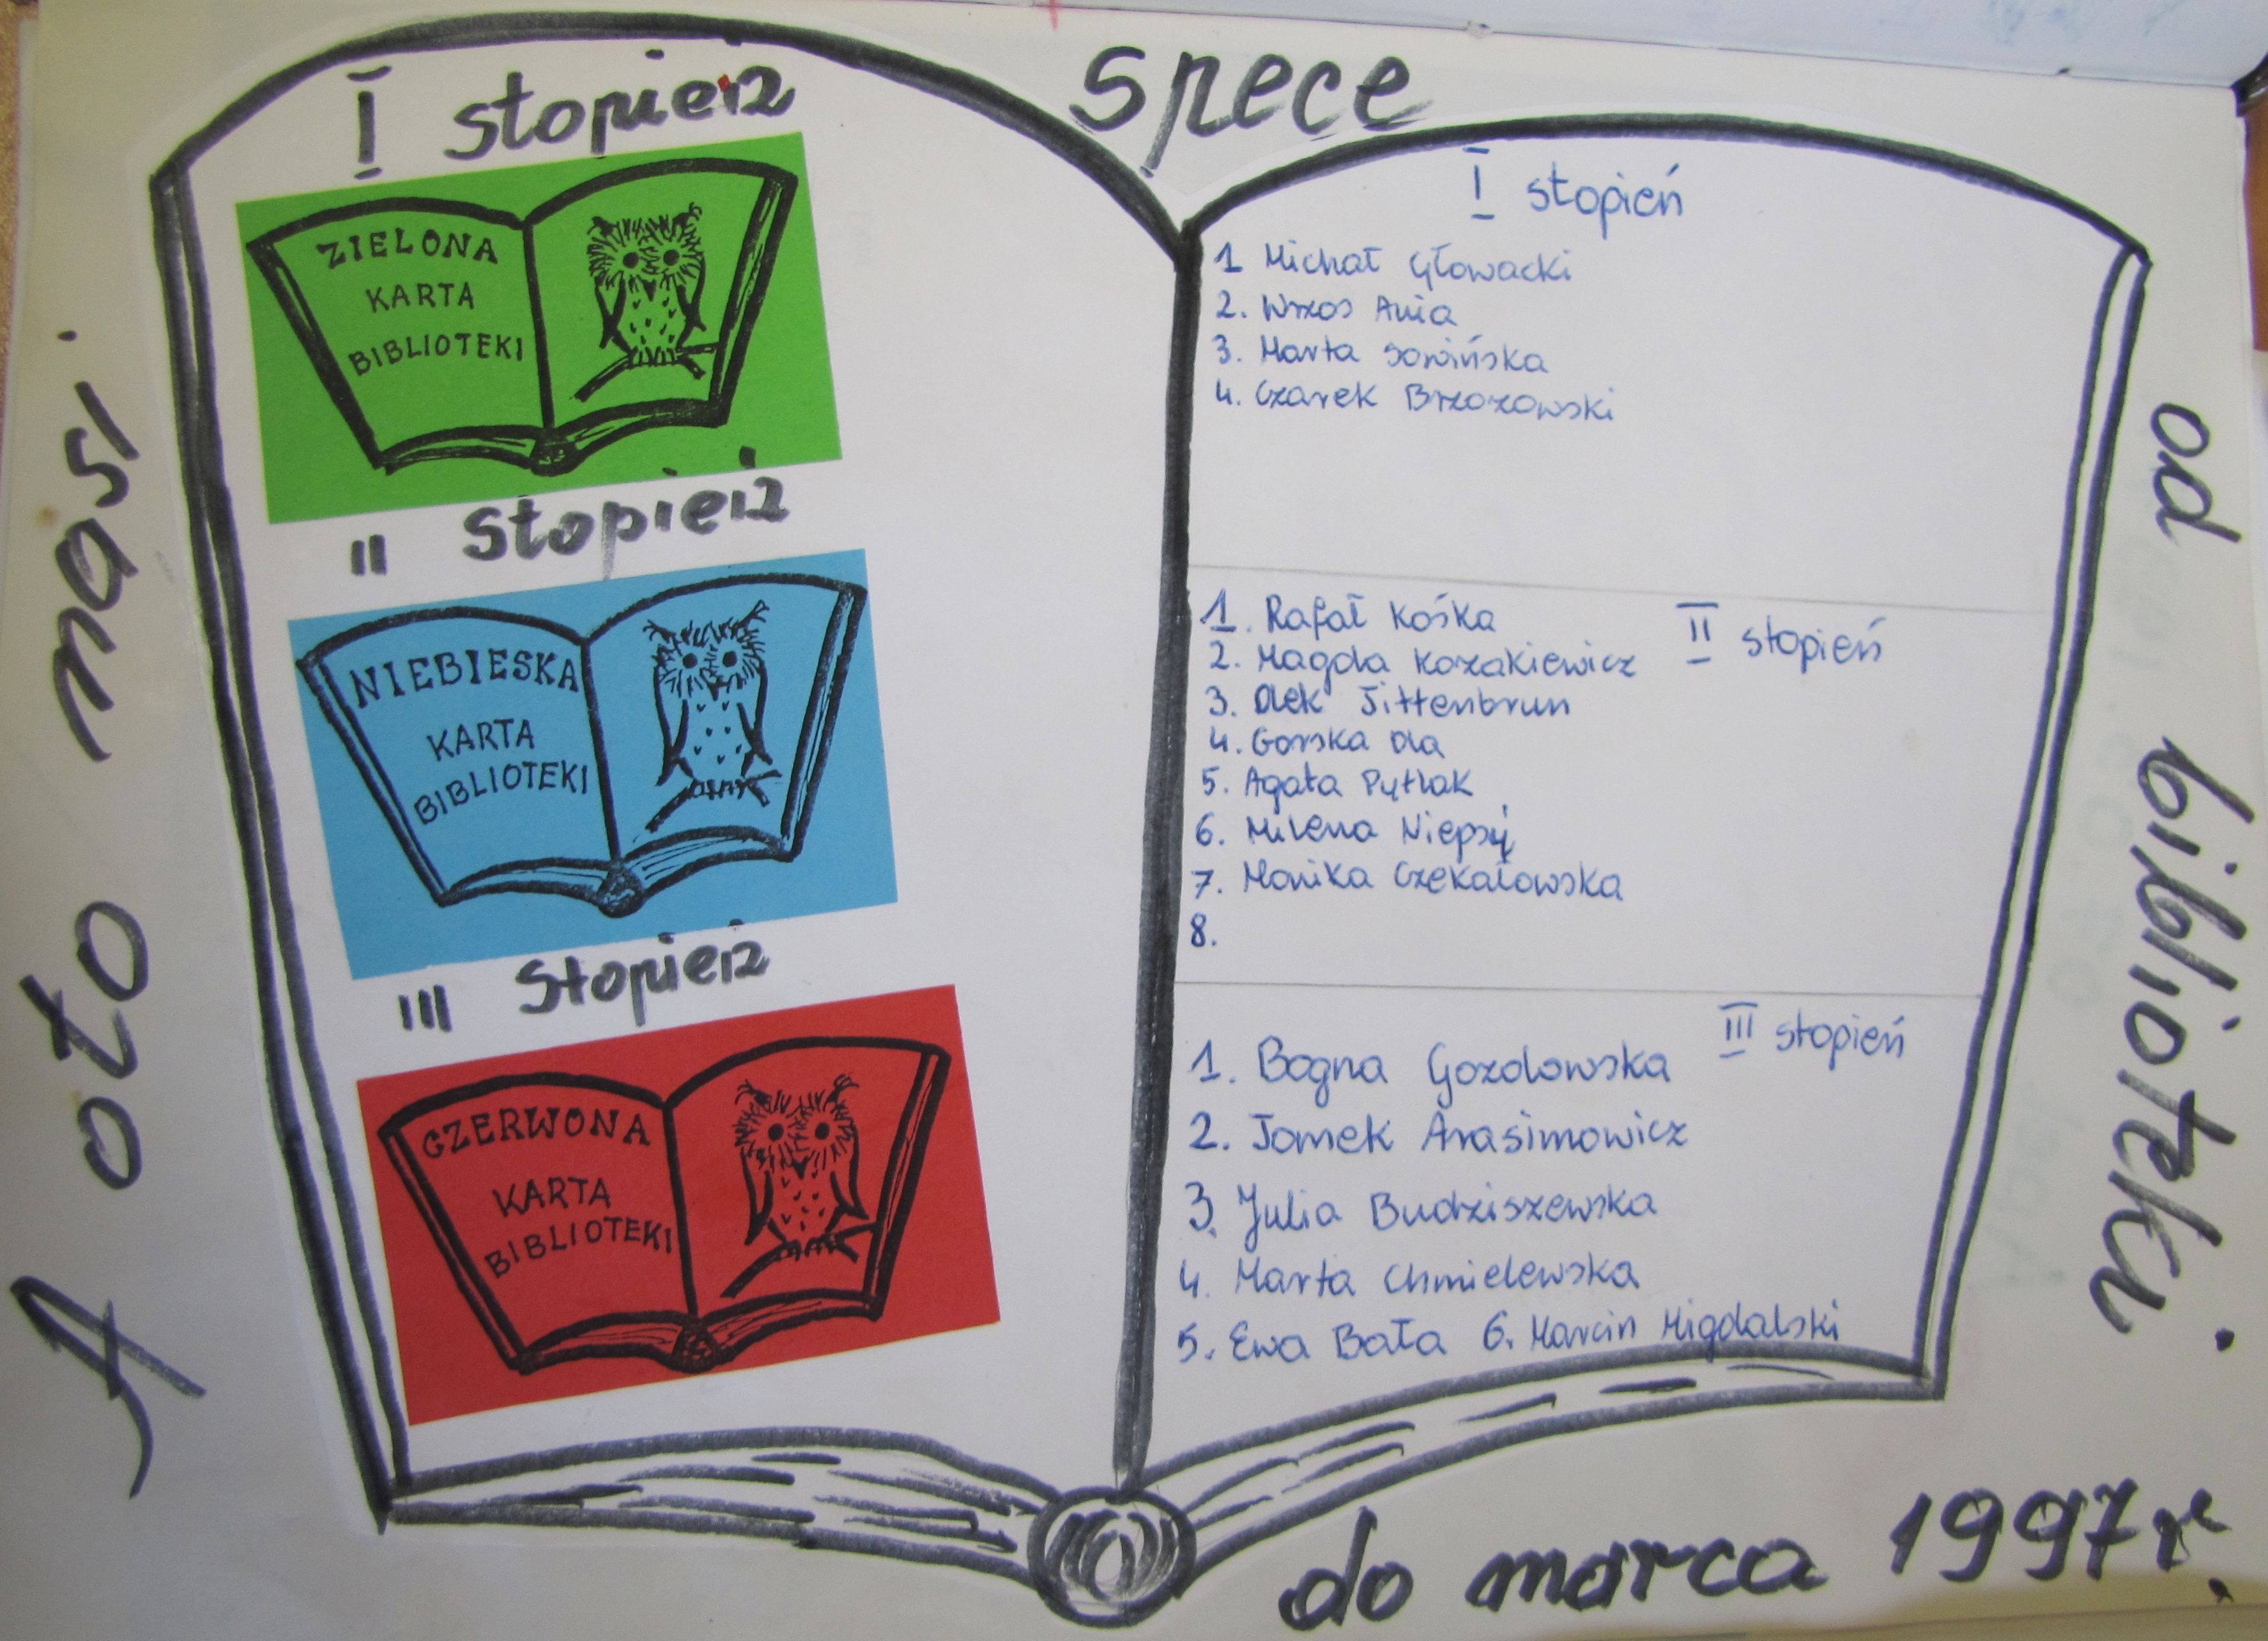 A oto nasi
spece
od biblioteki.
do marca 1997 r.
I stopień
ZIELONA
KARTA
BIBLIOTEKI
II stopień
NIEBIESKA
KARTA
BIBLIOTEKI
III stopień
CZERWONA
KARTA
BIBLIOTEKI
I stopień
1 Michał Głowacki
2. Wrzos Ania
3. Marta Sowińska
4. Czarek Brzozowski
II stopień
1. Rafał Kośka
2. Magda Kozakiewicz
3. Olek Tittenbrun
4. Gorska Ola
5. Agata Pytlak
6. Milena Niepsuj
7. Monika Czekałowska
8.
III stopień
1. Bogna Gozdowska
2. Tomek Arasimowicz
3. Julia Budziszewska
4. Marta Chmielewska
5. Ewa Bała 6. Marcin Migdalski